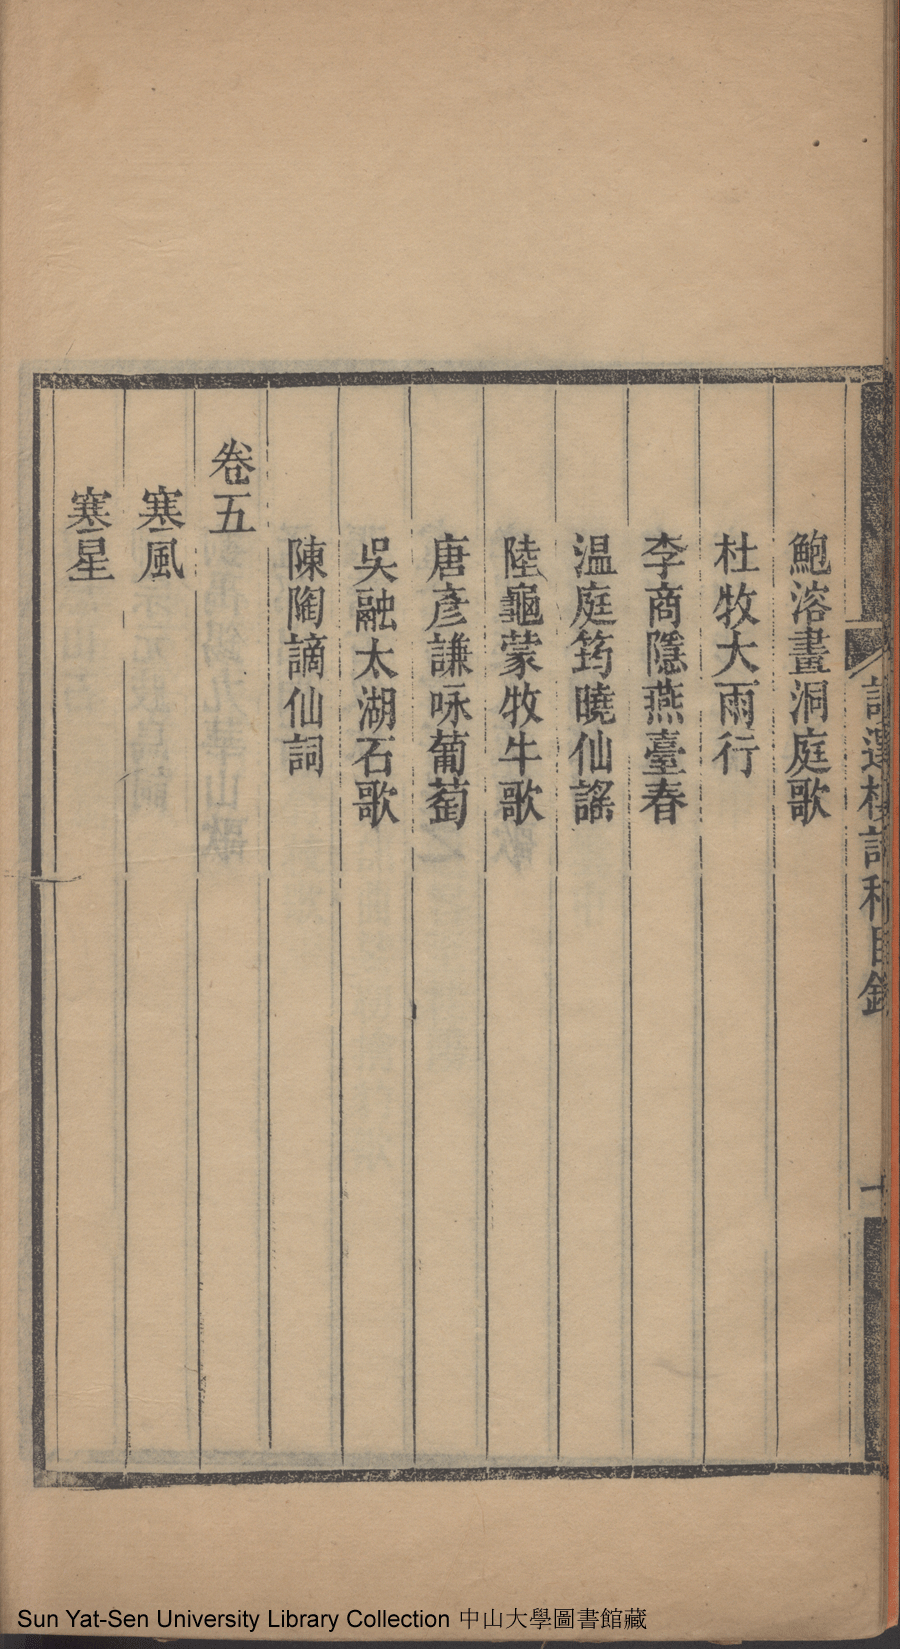 鮑溶畫洞庭歌
杜牧大雨行
李商隱燕臺春
温庭筠曉仙謠
陸龜蒙牧牛歌
唐彥謙咏葡萄
吳融太湖石歌
陳陶謫仙詞
卷五
寒風
寒星
詩選樓詩稿目錄
Sun Yat-Sen University Library Collection 中山大學圖書館藏